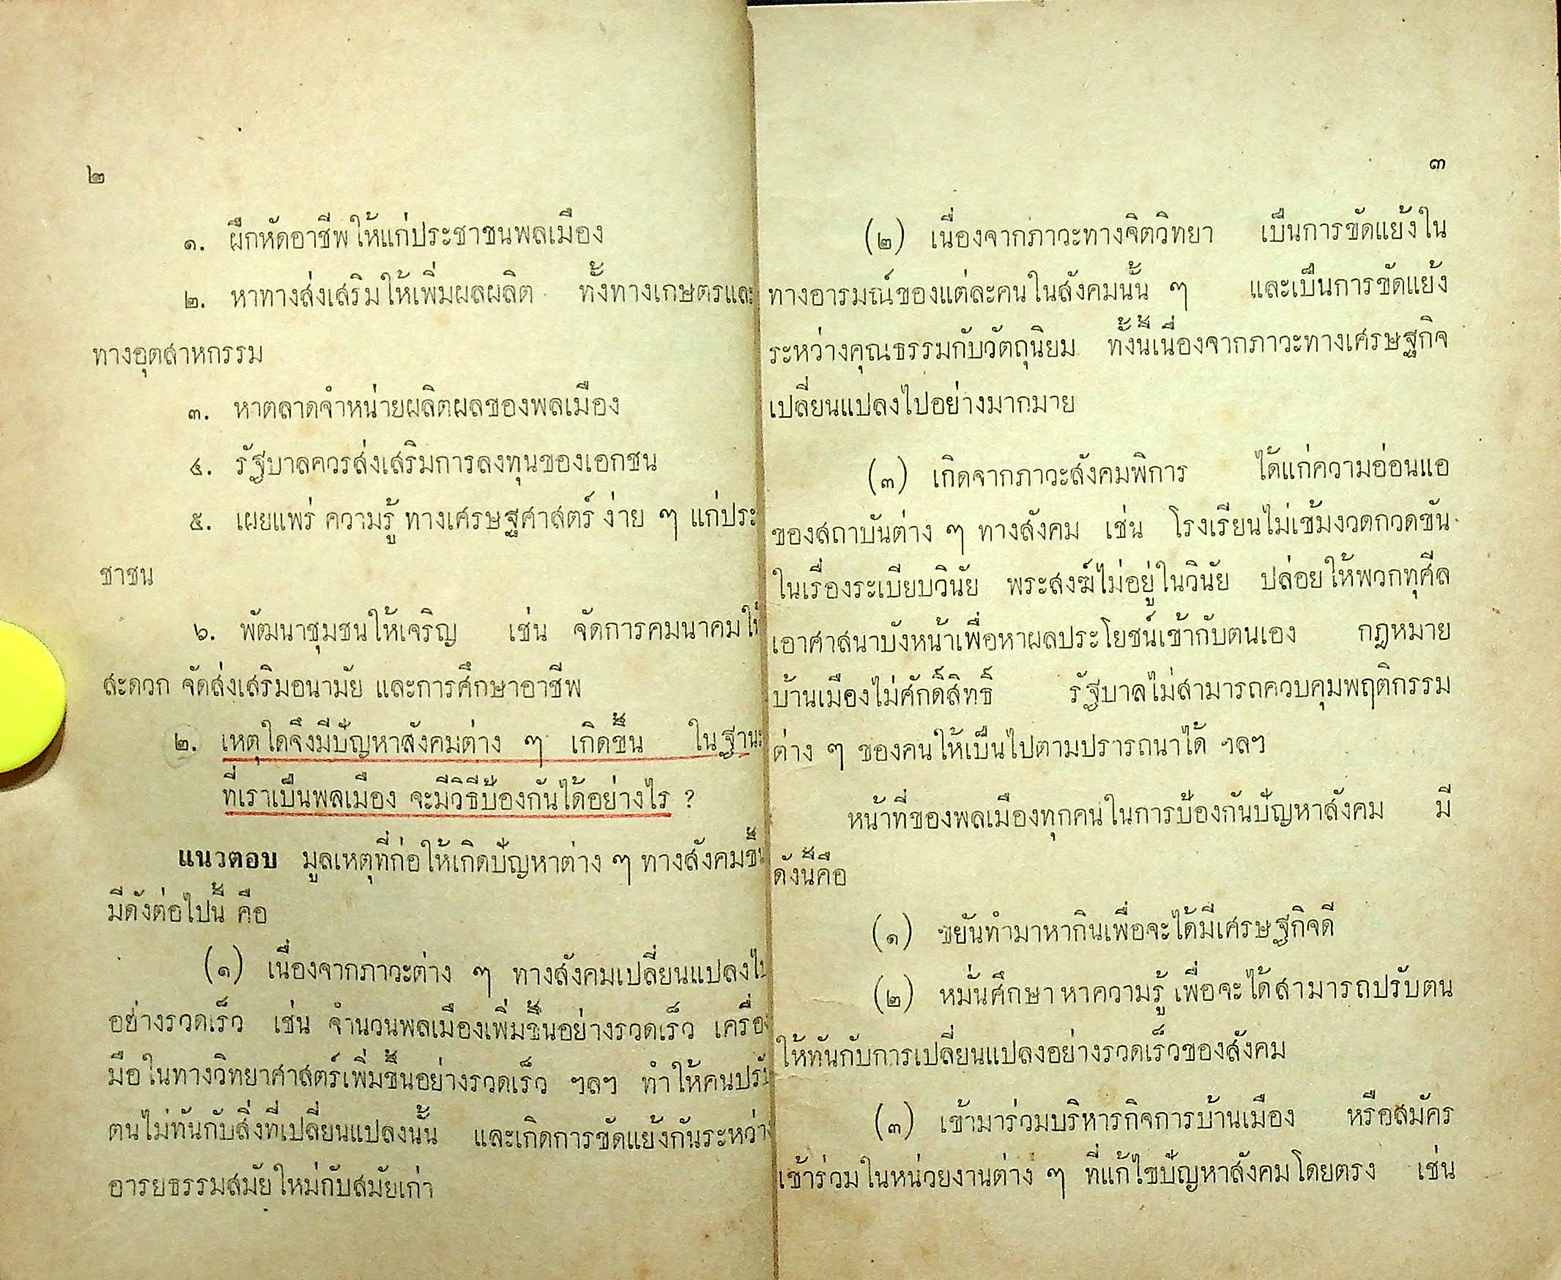 ๒
๑. ฝึกหัดอาชีพให้แก่ประชาชนพลเมือง
๒. หาทางส่งเสริมให้เพิ่มผลผลิต ทั้งทางเกษตรและ
ทางอุตสาหกรรม
๓. หาตลาดจำหน่ายผลิตผลของพลเมือง
๔. รัฐบาลควรส่งเสริมการลงทุนของเอกชน
๕. เผยแพร่ ความรู้ ทางเศรษฐศาสตร์ ง่าย ๆ แก่ประ
ชาชน
๖. พัฒนาชุมชนให้เจริญ เช่น จัดการคมนาคมให้
สะดวก จัดส่งเสริมอนามัย และการศึกษาอาชีพ
๒. เหตุใดจึงมีปัญหาสังคมต่าง ๆ เกิดขึ้น ในฐานะ
ที่เราเป็นพลเมือง จะมีวิธีป้องกันได้อย่างไร ?
แนวตอบ มูลเหตุที่ก่อให้เกิดปัญหาต่าง ๆ ทางสังคมขึ้น
มีดังต่อไปนี้ คือ
(๑) เนื่องจากภาวะต่าง ๆ ทางสังคมเปลี่ยนแปลงไป
อย่างรวดเร็ว เช่น จำนวนพลเมืองเพิ่มขึ้นอย่างรวดเร็ว เครื่อง
มือในทางวิทยาศาสตร์เพิ่มขึ้นอย่างรวดเร็ว ฯลฯ ทำให้คนปรับ
ตนไม่ทันกับสิ่งที่เปลี่ยนแปลงนั้น และเกิดการขัดแย้งกันระหว่าง
อารยธรรมสมัยใหม่กับสมัยเก่า
๓
(๒) เนื่องจากภาวะทางจิตวิทยา เป็นการขัดแย้งใน
ทางอารมณ์ของแต่ละคนในสังคมนั้น ๆ และเป็นการขัดแย้ง
ระหว่างคุณธรรมกับวัตถุนิยม ทั้งนี้เนื่องจากภาวะทางเศรษฐกิจ
เปลี่ยนแปลงไปอย่างมากมาย
(๓) เกิดจากภาวะสังคมพิการ ได้แก่ความอ่อนแอ
ของสถาบันต่าง ๆ ทางสังคม เช่น โรงเรียนไม่เข้มงวดกวดขัน
ในเรื่องระเบียบวินัย พระสงฆ์ไม่อยู่ในวินัย ปล่อยให้พวกทุศีล
เอาศาสนาบังหน้าเพื่อหาผลประโยชน์เข้ากับตนเอง กฎหมาย
บ้านเมืองไม่ศักดิ์สิทธิ์ รัฐบาลไม่สามารถควบคุมพฤติกรรม
ต่าง ๆ ของคนให้เป็นไปตามปรารถนาได้ ฯลฯ
หน้าที่ของพลเมืองทุกคนในการป้องกันปัญหาสังคม มี
ดังนี้คือ
(๑) ขยันทำมาหากินเพื่อจะได้มีเศรษฐกิจดี
(๒) หมั่นศึกษา หาความรู้ เพื่อจะได้สามารถปรับตน
ให้ทันกับการเปลี่ยนแปลงอย่างรวดเร็วของสังคม
(๓) เข้ามาร่วมบริหารกิจการบ้านเมือง หรือสมัคร
เข้าร่วมในหน่วยงานต่าง ๆ ที่แก้ไขปัญหาสังคมโดยตรง เช่น